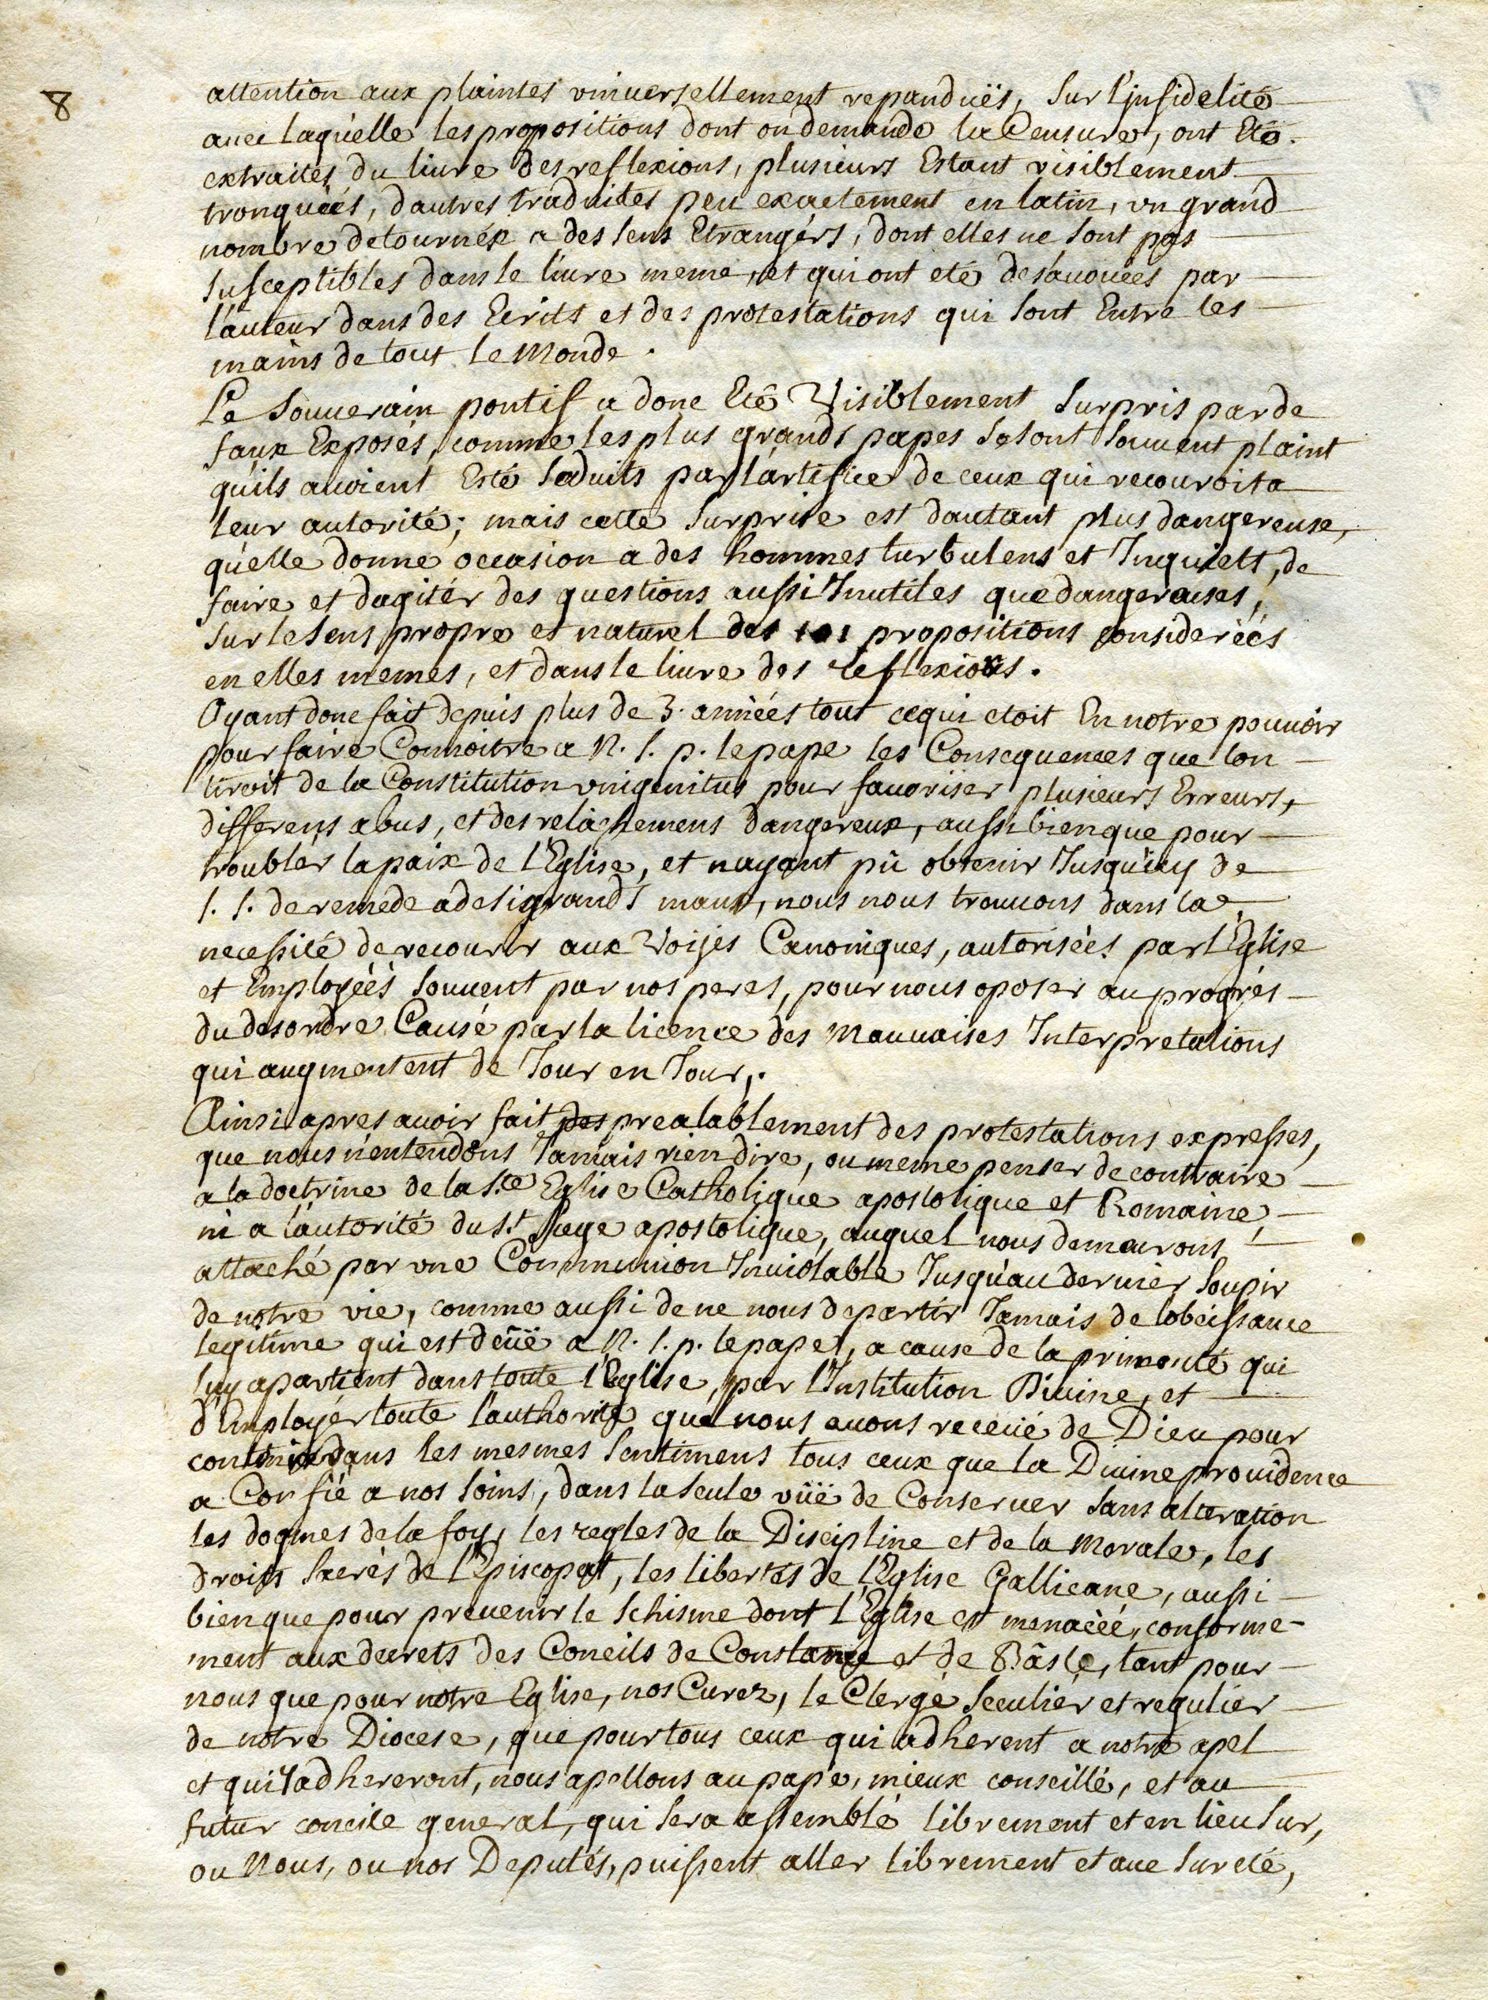 8
attention aux plaintes vniuersellement repanduës, sur l'jnfidelité
auec laquelle les propositions dont on demande la Censure, ont Eté
extraites du liure des reflexions, plusieurs Estant visiblement
tronquées, dautres traduites peu exactement en latin, vn grand
nombre detournéz a des sens Etrangérs, dont elles ne sont pas
susceptibles dans le liure meme, et qui ont eté desauouées par
lauteur dans des Ecrits et des protestations qui sont Entre les
mains de tout le Monde.
Le Souuerain pontif a donc Eté Visiblement surpris par de
faux Exposés, comme les plus grands papes se sont souuent plaint
quils auoient Esté seduits par l'artifice de ceux qui recouroit a
leur autorité; mais cette surprise est dautant plus dangereuse,
quelle donne occasion a des hommes turbulens et Inquiets, de
faire et dagitér des questions aussi Inutiles que dangereuses,
sur le sens propre et naturel des 101 propositions considerées
en elles memes, et dans le liure des reflexions.
Ayant donc fait depuis plus de 3. années tout cequi etoit En notre pouuoir
pour faire Connoitre a N. S. p. le pape les Consequences que lon
tiroit de la Constitution vnigenitus pour fauoriser plusieurs Erreurs,
differens abus, et des relachemens dangereux, aussi bien que pour
troubler la paix de l'Eglise, et nayant pû obtenir Jusqu'icy de
S. S. de remede a de si grands maux, nous nous trouuons dans la
necessité de recourir aux Voijes Canoniques, autorisées par l'Eglise
et Employéés souuent par nos peres, pour nous oposer au progrés
du desordre Causé par la licence des Mauuaises Interpretations
qui augmentent de Jour en Jour,.
Ainsi apres auoir fait des prealablement des protestations expresses,
que nous n'entendons Jamais rien dire, ou meme penser de contraire
a la doctrine de la Ste Eglise Catholique apostolique et Romaine,
ni a l'autorité du St. Siege apostolique, auquel nous demeurons
attaché par vne Communion Inuiolable Jusqu'au dernier soupir
de notre vie, comme aussi de ne nous departir Jamais de lobeissance
legitime qui est deüe a N. S. p. le pape, a cause de la primauté qui
luy apartient dans toute l'Eglise, par l'Institution Diuine, et
d'Employér toute l'authorité que nous auons receüe de Dieu pour
contenir dans les mesmes sentimens tous ceux que la Diuine prouidence
a Confié a nos soins, dans la seule vüe de Conseruer sans alteration
les dogmes de la foy, les regles de la Discipline et de la Morale, les
droits sacrés de l'Episcopat, les libertés de l'Eglise Gallicane, aussi
bien que pour preuenir le Schisme dont l'Eglise est menacéé, conforme-
ment aux decrets des Concils de Constance et de Bâsle, tant pour
nous que pour notre Eglise, nos Curez, le Clergé Seculiér et regulier
de notre Diocese, que pour tous ceux qui adherent a notre apel
et qui y adhereront, nous apellons au pape, mieux conseillé, et au
futur concile general, qui sera assemblé librement et en lieu sur,
ou Nous, ou nos Deputés, puissent aller librement et auec sureté,